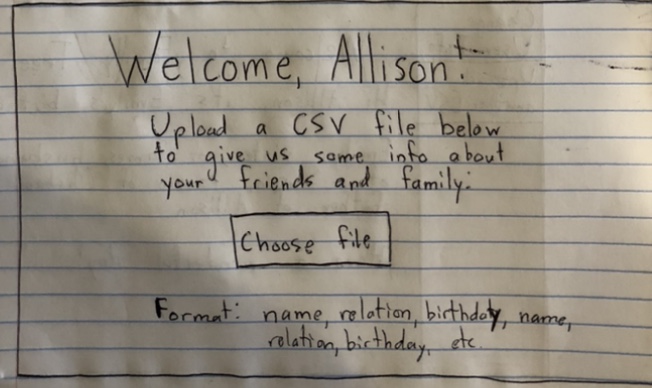 Welcome, Allison!
Upload a CSV file below
to give us some info about
your friends and family:
Choose file
Format: name, relation, birthday, name,
relation, birthday, etc.